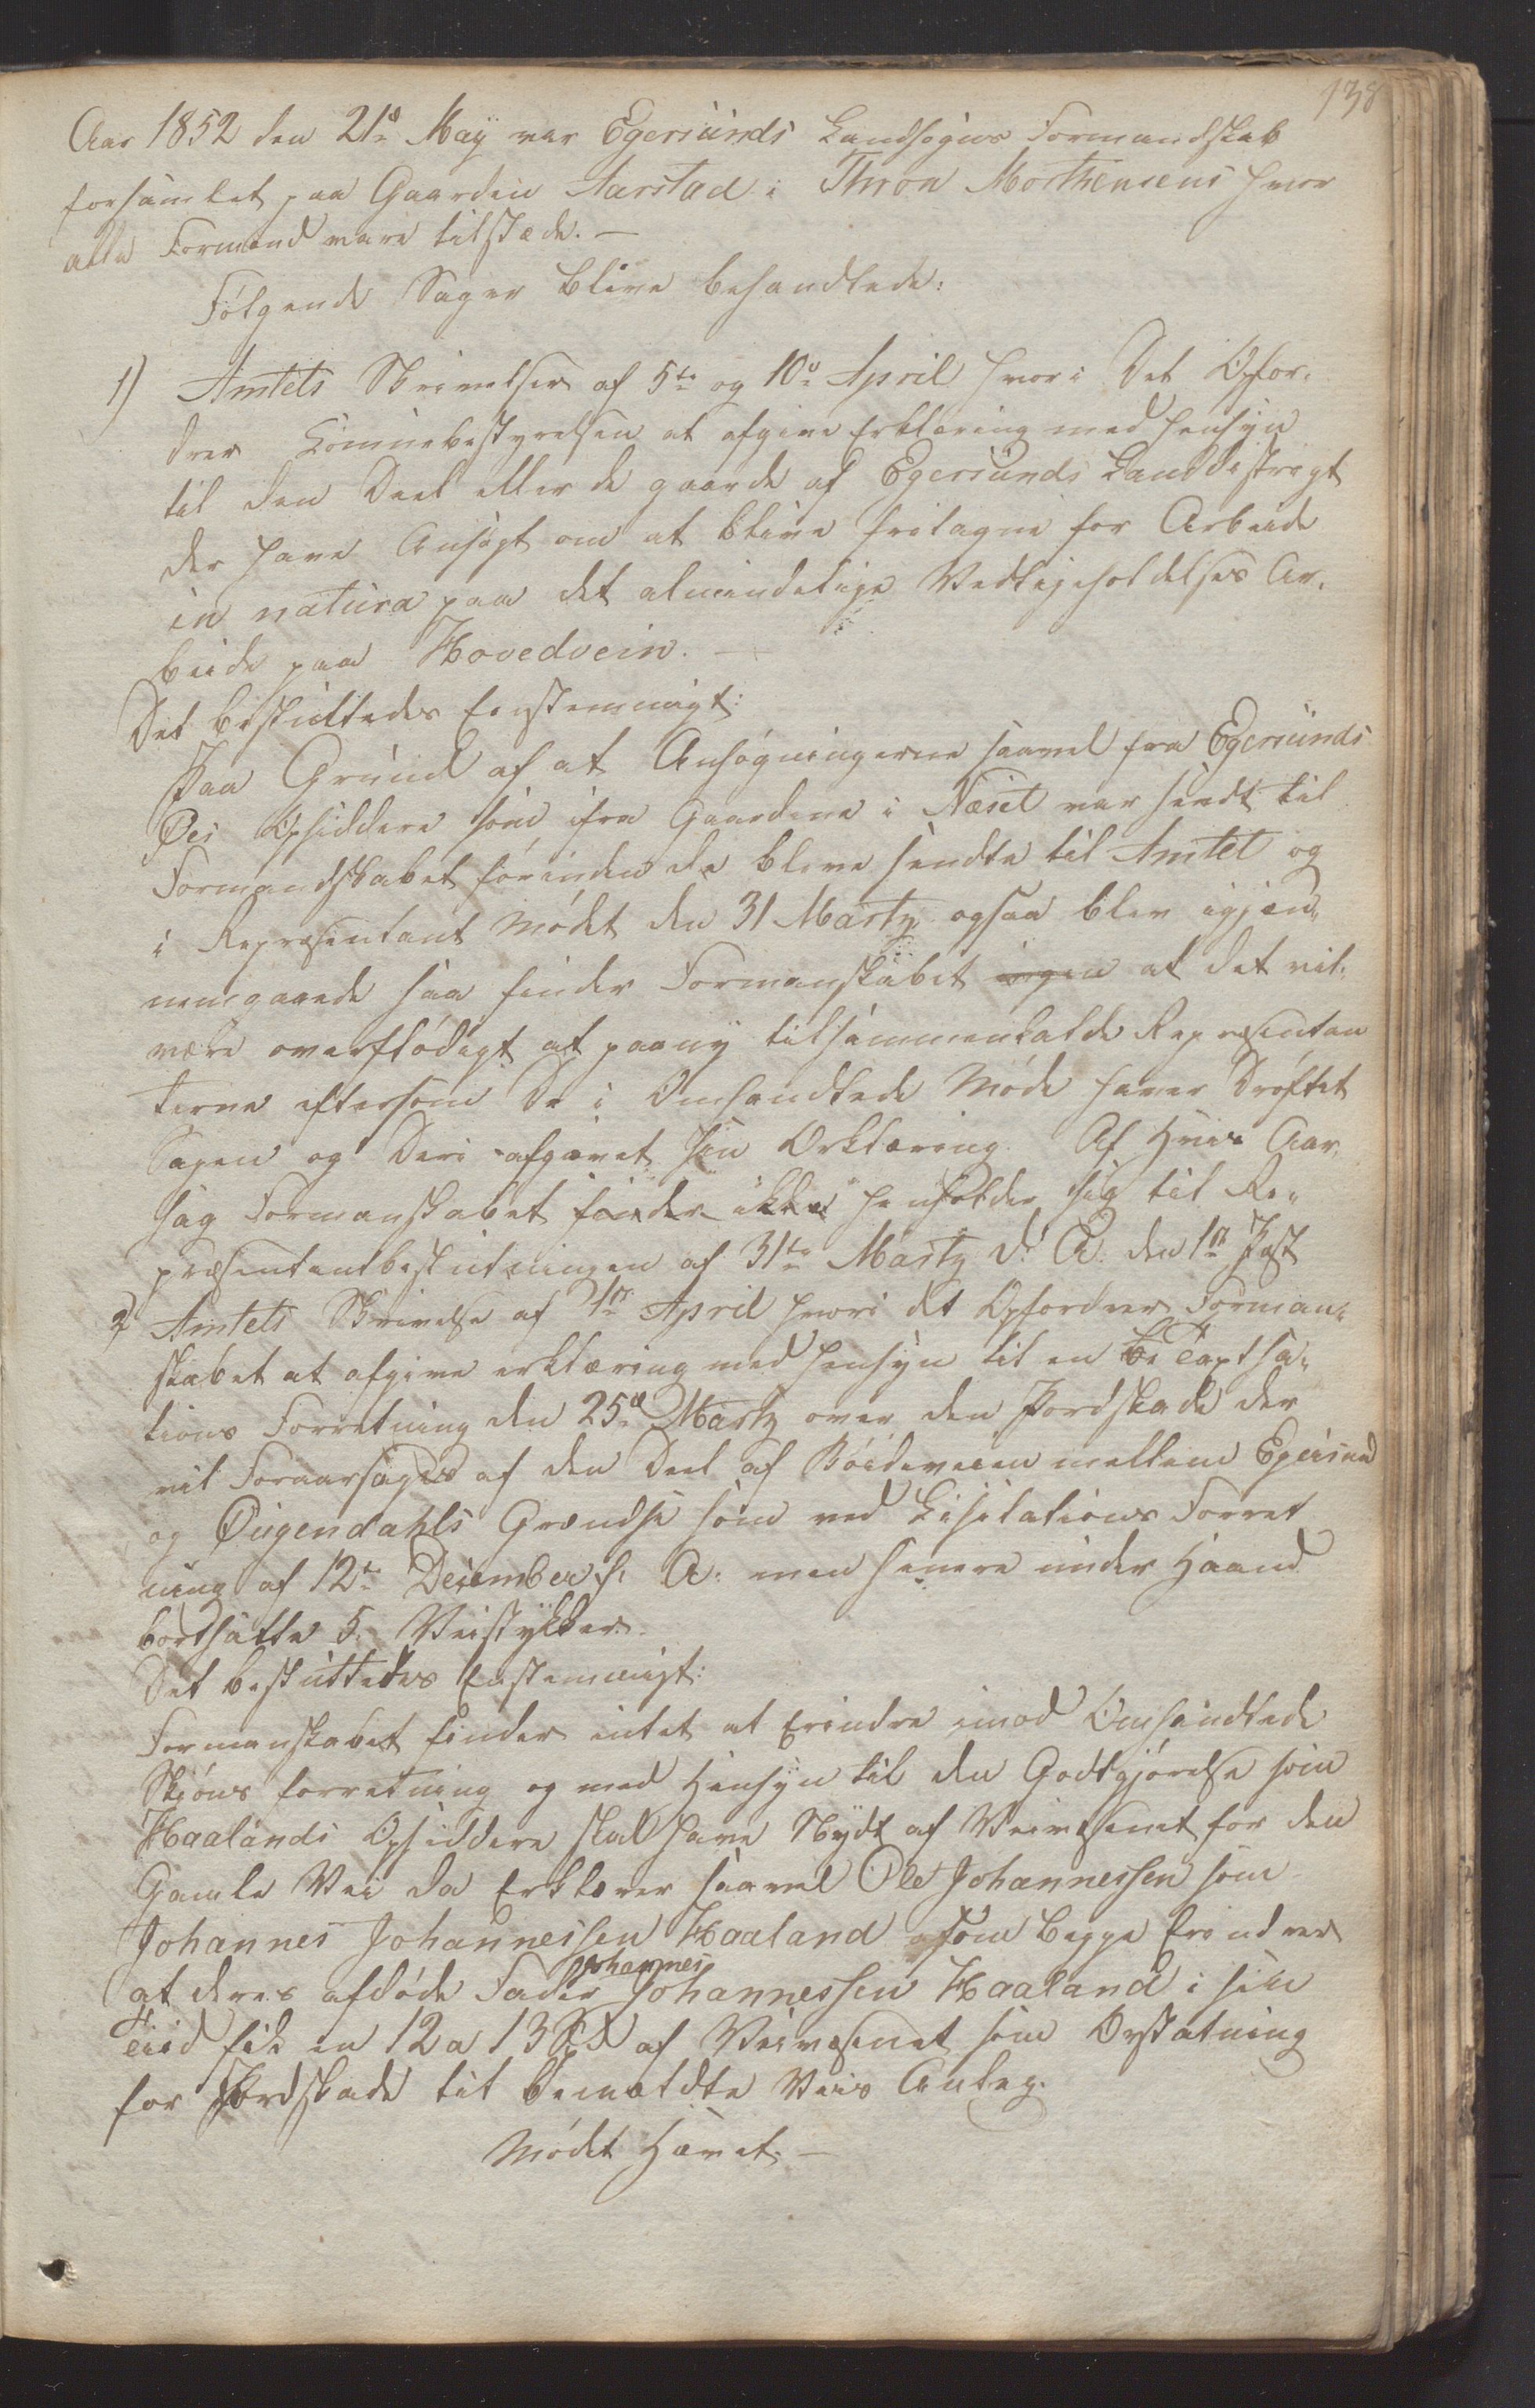 138
Aar 1852 den 21de May var Egersunds Landsogns Formandskab
forsamlet paa Gaarden Aarstad i Thron Morthensens hvor
alle Formænd vare tilstæde. —
Følgende Sager bleve behandlede:
1) Amtets Skrivelser af 5te og 10de April hvori Det Opfor-
drer Comunebestyrelsen at afgive Erklæring med Hensyn
til den Deel eller de gaarde af Egersunds Landdistrigt
der have Ansøgt om at blive fritagne for Arbeide
in natura paa det almindelige Vedligeholdelses Ar-
beide paa Hovedvein. —
Det besluttedes Enstemmigt:
Paa Grund af at Ansøgningerne saavel fra Egersunds
Øes Opsiddere som ifra Gaardene i Næset var sendt til
Formandskabet førinden de bleve sendte til Amtet og
i Repræsentant Mødet den 31 Martz ogsaa blev igjen-
nemgaaede saa finder Formanskabet ingen at det vil
være overflødigt at paany tilsammenkalde Repræsentan
terne eftersom De i Omhandlede Møde haver Drøftet
Sagen og Deri afgivet sin Erklæring. Af Hvis Aar-
sag Formanskabet finder ikke henholder sig til Re-
præsentantbeslutningen af 31te Martz d. A. den 1st Post
2 Amtets Skrivelse af 1st April hvori det Opfordrer Forman-
skabet at afgive erklæring med Hensyn til en Taxtsa-
tions Forretning den 25de Martz over den Jordskade der
vil Foraarsages af den Deel af Bøideveien mellem Egersund
og Øugendahls Grændse som ved Lisitations Forret
ning af 12te Desember f. A. men senere under Haand
bortsatte 5 Veistykker.
Det besluttedes Enstemmigt:
Formanskabet finder intet at Erindre imod Omhandlede
Skjøns forretning og med Hensyn til den Godtgjørelse som
Haalands Opsiddere skal have Nydt af Veivæsenet for den
Gamle Vei da Erklærer saavel Ole Johannessen som
Johannes Johannessen Haaland som begge Erindrer
at deres afdøde Fader Johannes Johannessen Haaland i sin
Tiid fik en 12 a 13 Spd af Veivæsenet som Erstatning
for Jordskade til bemældte Veis Anleg.
Mødet Hævet. —